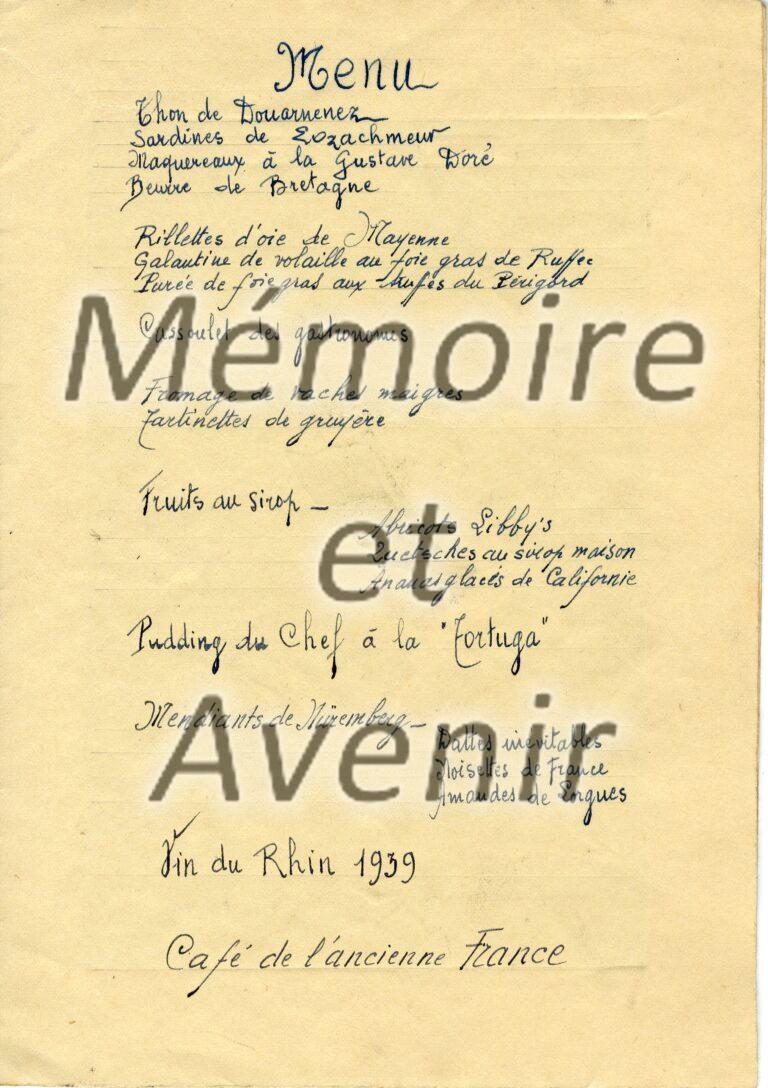 Menu
Thon de Douarnenez
Sardines de Lozachmeur
Maquereaux à la Gustave Doré
Beurre de Bretagne
Rillettes d'oie de Mayenne
Galantine de volaille au foie gras de Ruffec
Purée de foie gras aux truffes du Périgord
Cassoulet des gastronomes
Fromage de vaches maigres
Tartinettes de gruyère
Fruits au sirop –
Abricots Libby's
Quetsches au sirop maison
Ananas glacés de Californie
Pudding du Chef à la "Tortuga"
Mendiants de Nüremberg –
Dattes inévitables
Noisettes de France
Amandes de Lorgues
Vin du Rhin 1939
Café de l'ancienne France
Mémoire
et
Avenir